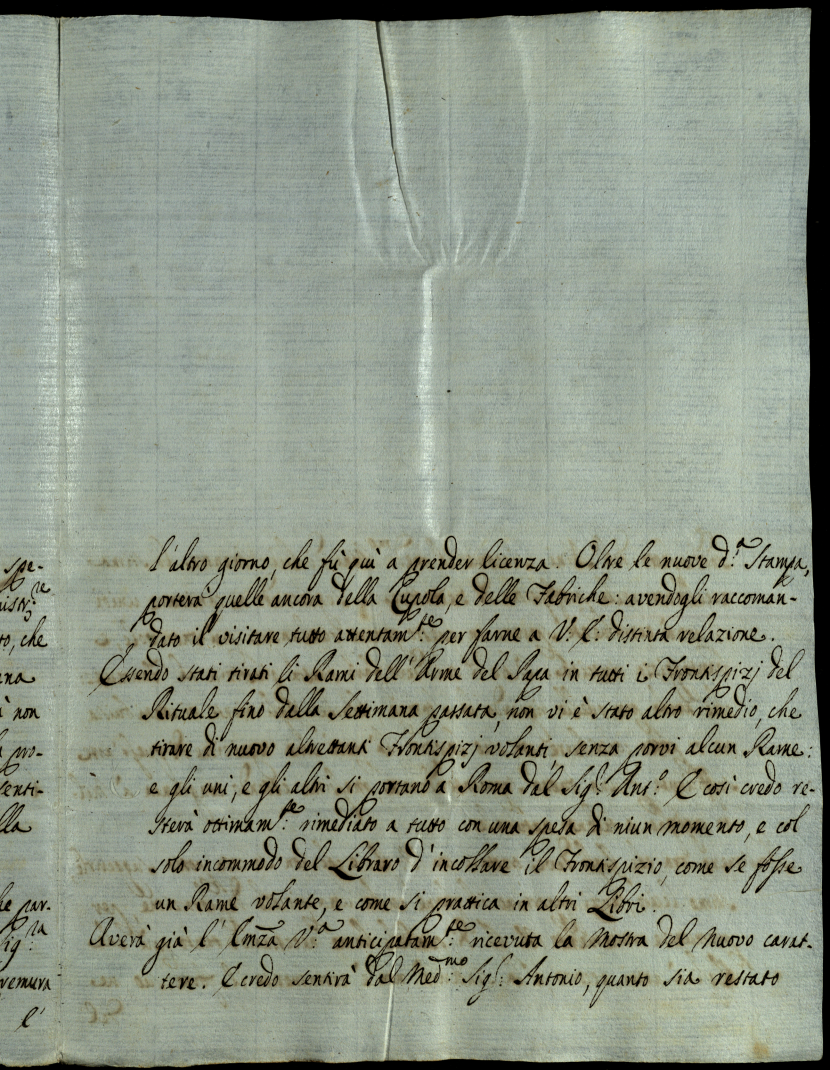 spe-
nistr:re
to, che
ena
à non
la pro-
senti-
lla
he par-
Sig:ra
remura
l'
l'altro giorno, che fù quì a prender licenza. Oltre le nuove d.a Stampa,
porterà quelle ancora della Cupola, e delle Fabriche: avendogli raccoman-
dato il visitare tutto attentam:te per farne a V: E: distinta relazione.
Essendo stati tirati li Rami dell'Arme del Papa in tutti i Frontispizj del
Rituale fino dalla Settimana passata, non vi è stato altro rimedio, che
tirare di nuovo altrettanti Frontispizj volanti, senza porvi alcun Rame:
e gli uni, e gli altri si portano a Roma dal Sig: Ant:o E così credo re-
sterà ottimam:te rimediato a tutto con una spesa di niun momento, e col
solo incommodo del Libraro d'incollare il Frontispizio, come se fosse
un Rame volante, e come si prattica in altri Libri.
Averà già l'Emza V:a anticipatam:te ricevuta la Mostra del Nuovo carat-
tere. E credo sentirà dal Med:mo Sig: Antonio, quanto sia restato